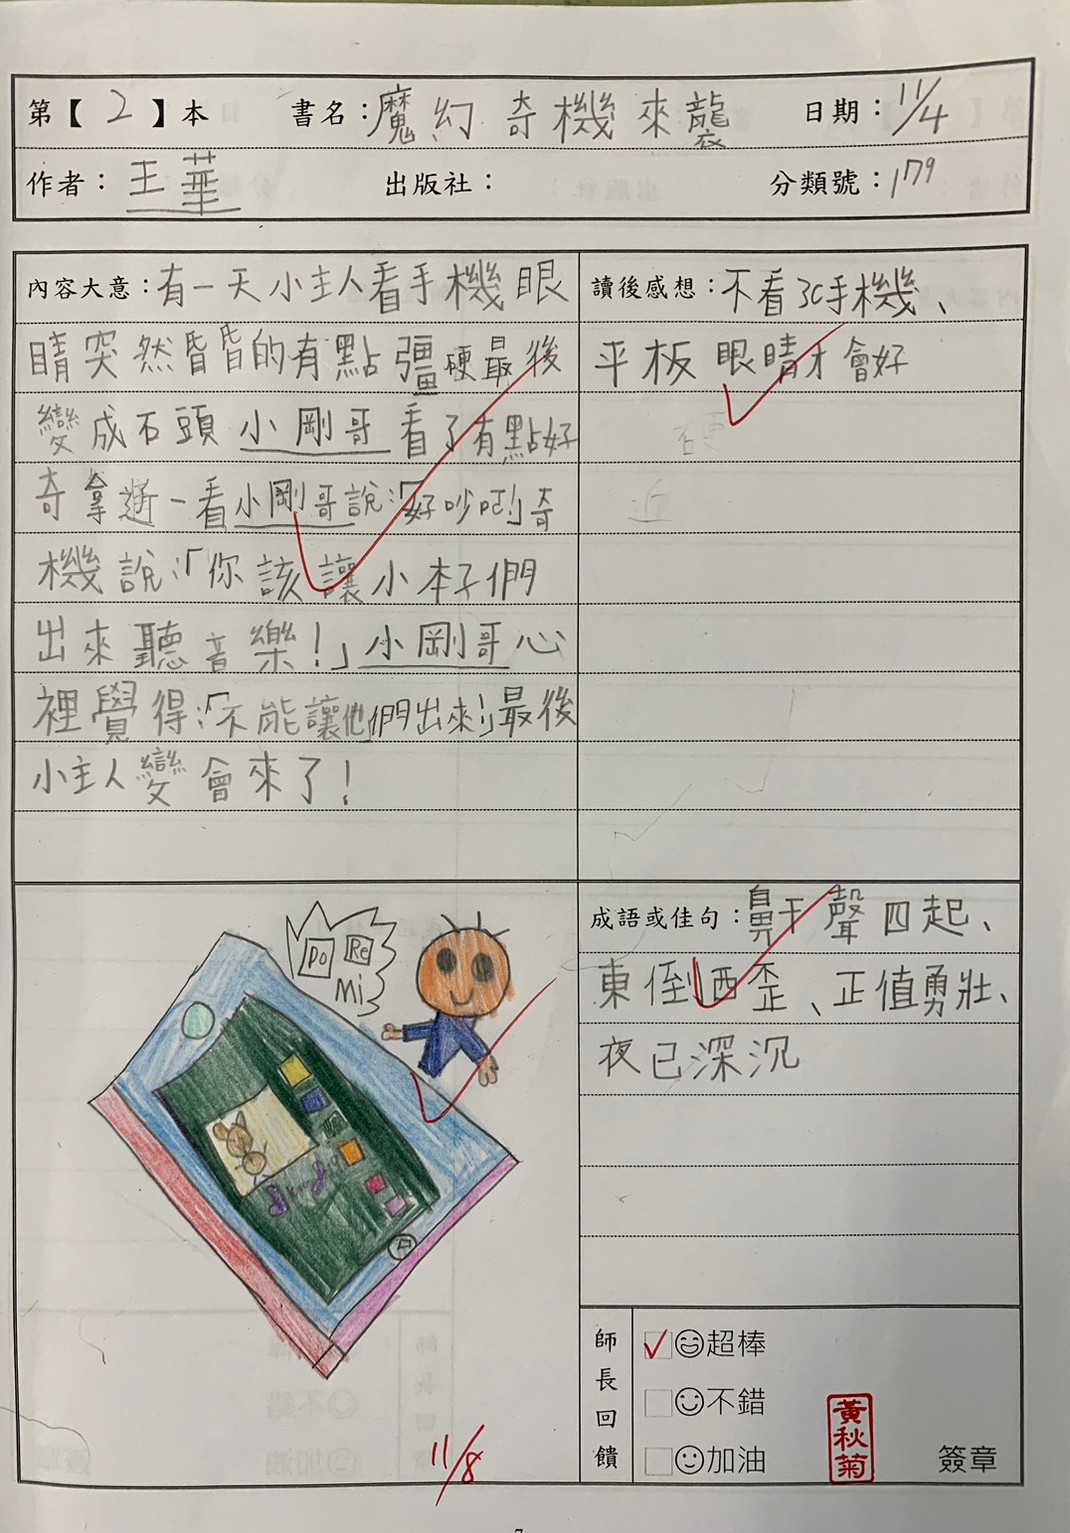 第【 2 】本 書名：魔幻奇機來襲 日期：11/4
作者：王華 出版社： 分類號：179
內容大意：有一天小主人看手機眼
睛突然昏昏的有點彊硬最後
變成石頭小剛哥看了有點好
奇拿近一看小剛哥說：「好吵啊!」奇
機說：「你該讓小本子們
出來聽音樂！」小剛哥心
裡覺得：「不能讓他們出來!」最後
小主人變會來了！
讀後感想：不看3C手機、
平板眼睛才會好
成語或佳句：鼾聲四起、
東倒西歪、正值勇壯、
夜已深沉
Do Re
Mi
師長回饋
超棒
不錯
加油
黃秋菊
簽章
11/8